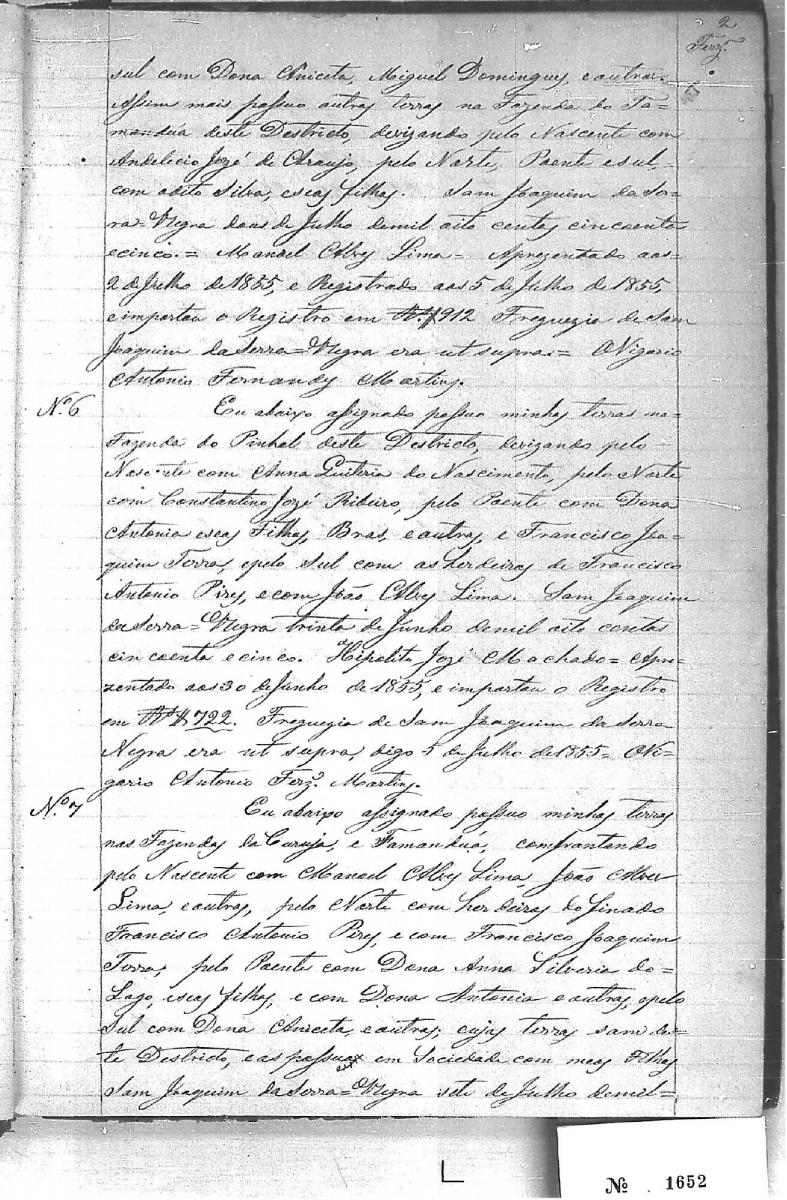 2
Ferz.
sul com Dona Aniceta, Miguel Domingues, e outros.
Assim mais possuo outras terras na Fazenda do Ta=
manduá deste Destricto, devizando pelo Nascente com
Andelecio Jozé de Araujo, pelo Norte, Poente e sul,
com o dito Silva, e seos filhos. Sam Joaquim da Ser=
ra=Negra dous de Julho de mil oito centos cincoenta
e cinco.= Manoel Alves Lima= Aprezentado aos=
2 de Julho de 1855, e Registrado aos 5 de Julho de 1855,
e importou o Registro em 912 Freguezia de Sam
Joaquim da Serra=Negra era ut supra.= O Vigario
Antonio Fernandes Martins.
N.º 6 Eu abaixo assignado possuo minhas terras na=
Fazenda do Pinhal deste Destricto, devizando pelo
Nascente com Anna Quiteria do Nascimento, pelo Norte
com Constantino Jozé Ribeiro, pelo Poente com Dona
Antonia e seos Filhos, Bras, e outros, e Francisco Joa=
quim Terra, e pelo Sul com os herdeiros de Francisco
Antonio Pires, e com João Alves Lima. Sam Joaquim
da Serra=Negra trinta de Junho de mil oito centos
cincoenta e cinco. Hipolito Jozé Machado= Apre=
zentado aos 30 de Junho de 1855, e importou o Registro
em 722. Freguezia de Sam Joaquim da Serra
Negra era ut supra, digo 5 de Julho de 1855= O Vi=
gario Antonio Ferz.º Martins.
N.º 7 Eu abaixo assignado possuo minhas terras
nas Fazendas da Coruja, e Tamanduá, comfrontando
pelo Nascente com Manoel Alves Lima João Alves
Lima, e outros, pelo Norte com herdeiros do finado
Francisco Antonio Pires, e com Francisco Joaquim
Terra, pelo Poente com Dona Anna Silveria do=
Lago, e seos filhos, e com Dona Antonia e outros, e pelo
Sul com Dona Aniceta, e outros; cujas terras sam des=
te Destricto, e as possuo em Sociedade com meos Filhos
Sam Joaquim da Serra=Negra sete de Julho de mil=
L
№ 1652